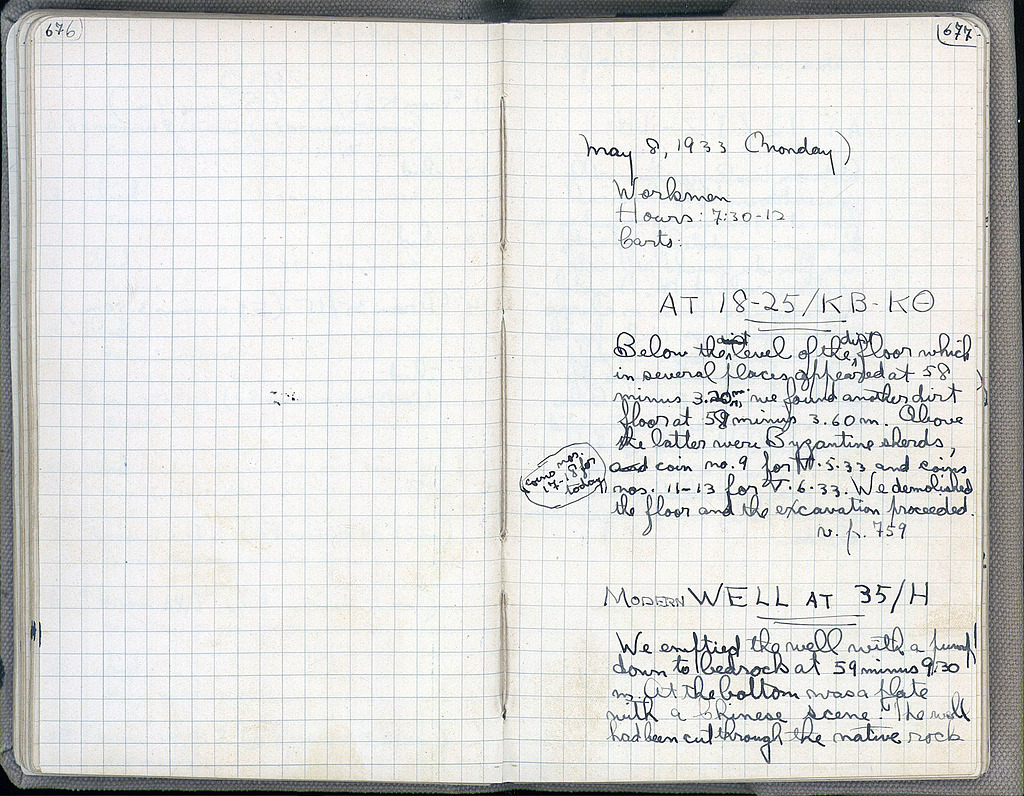 676
677
May 8, 1933 (Monday)
Workmen
Hours: 7:30-12
Carts:
AT 18-25/KB-KΘ
Below the level of the dirt floor which
in several places appeared at 58
minus 3.20 m. we found another dirt
floor at 58 minus 3.60 m. Above
the latter were Byzantine sherds,
and coin no. 9 for V.5.33 and coins
nos. 11-13 for V.6.33. We demolished
the floor and the excavation proceeded.
v. p. 759
coins nos.
17-18 for
today
MODERN WELL AT 35/H
We emptied the well with a pump
down to bedrock at 59 minus 9.30
m. At the bottom was a plate
with a Chinese scene! The well
had been cut through the native rock